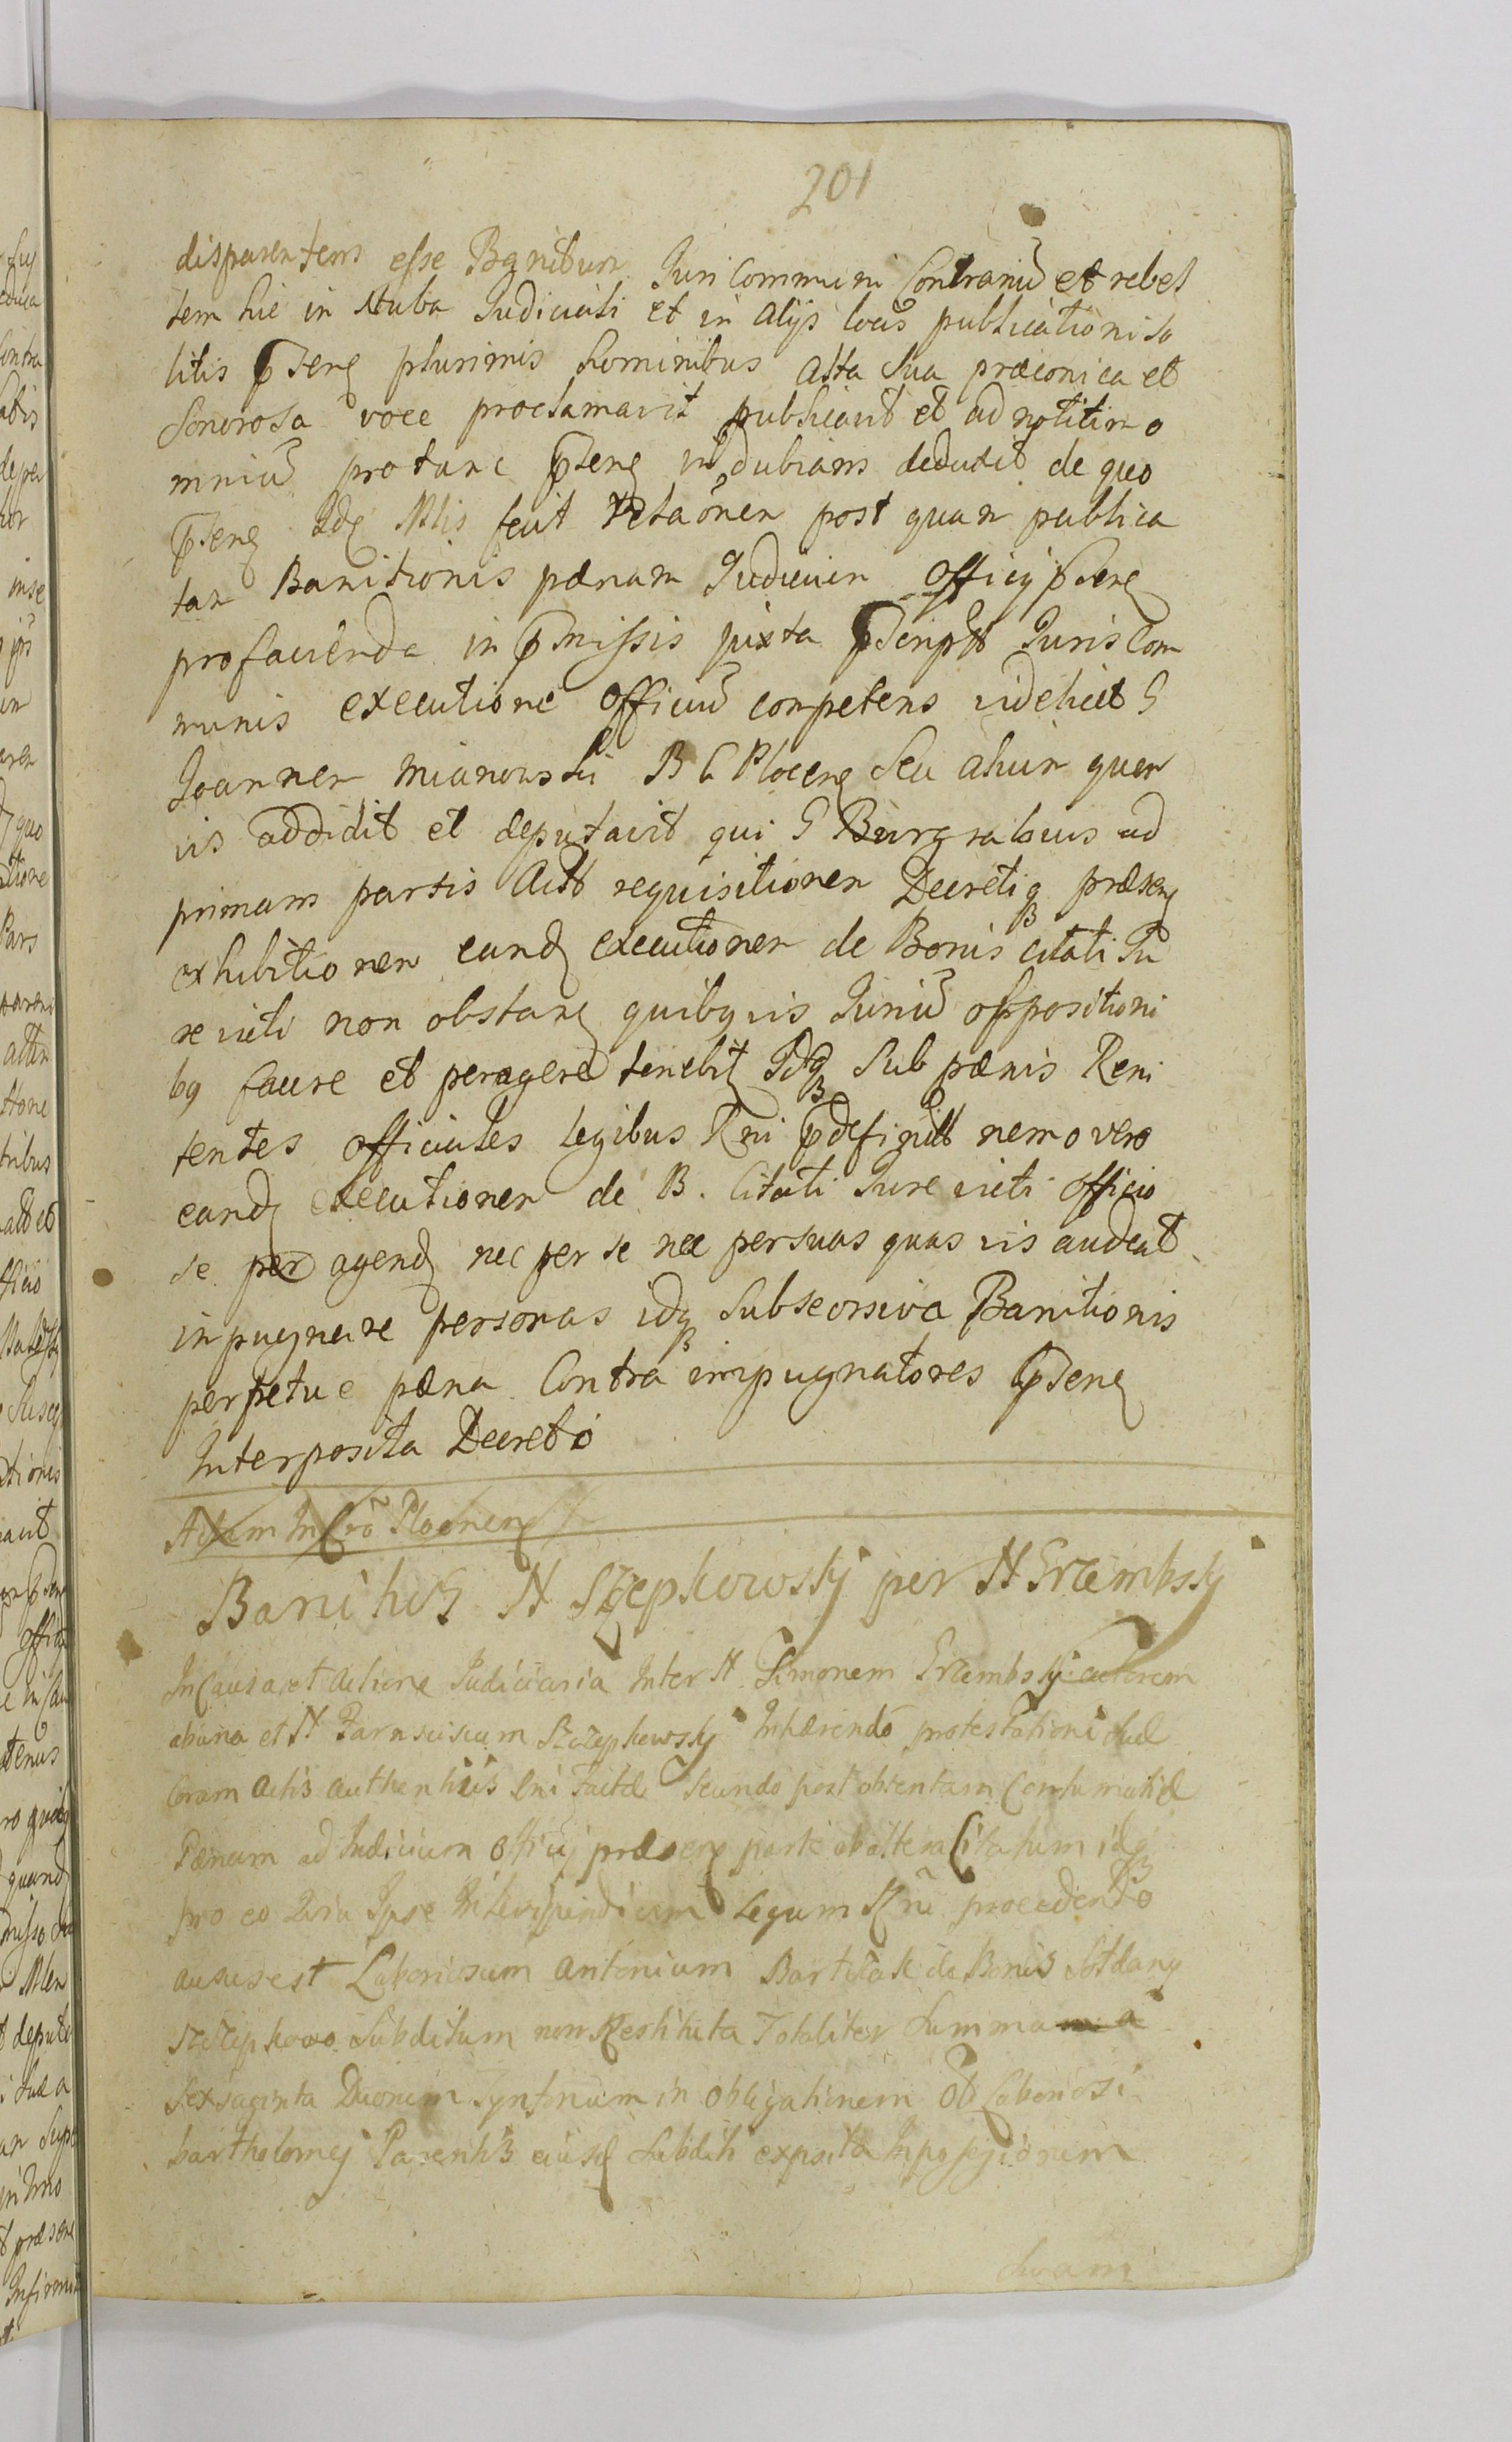 201
disparentem esse Banitum Juri Communi Contrariu et rebel
lem hic in stuba Judiciali et in alijs locis publicationi so
litis pstens plurimis hominibus alta sua præconica et
sonorosa voce proclamavit publicavit et ad notitim o
mniu protunc pstens indubiam dedudit de quo
pstens Idq Mlis fecit relaonem post quam publica
tam Banitionis pænam Judicium Officij pstens
pro facienda in pmissis juxta pscript Juris Com
munis executione Officiu competens videlicet G
Joannem Mianowski B C Plocens seu alium quem
vis addidit et deputavit qui G Burgrabius ad
primam partis Act requisitionem Decretiq præsens
exhibitionem eand executionem de Bonis citati Ju
re victi non obstanq quibqvis Juriu oppositioni
bq facere et peragere tenebit Idq sub pænis Reni
tentes officiales legibus Rni pdefinitt nemo vero
eand executionem de B. Citati Jure victi officio
se per agend nec per se nec per suas quas vis audeat
inpugnare personas idq sub seorsiva Banitionis
perpetue pæna Contra impugnatores pstens
Interposita Decreto
Actum In Cro Plocnens
Banitios N Szepkowskj per N Grzembskj
In Causa et actione Judiciaria Inter N Simonem Grzembskj actorem
abuna et N Szczepkowskj Inhærendo protestationi suæ
Coram actis authenticis Cni factæ secundo post obtentam Contumatiæ
Pænam ad Judicium Officij præsens parte ab altera Citatum idq
pro eo Quia Ipse In legum Rni procedendo
ausus est Laboriosum Antonium de Bonis
Szczepkowo subditum non Restituta Totaliter summa
sexaginta Duorum in obligationem Ob Laboriosi
bartholomej Parentis eiusd subditi exposita In possessionem
suam